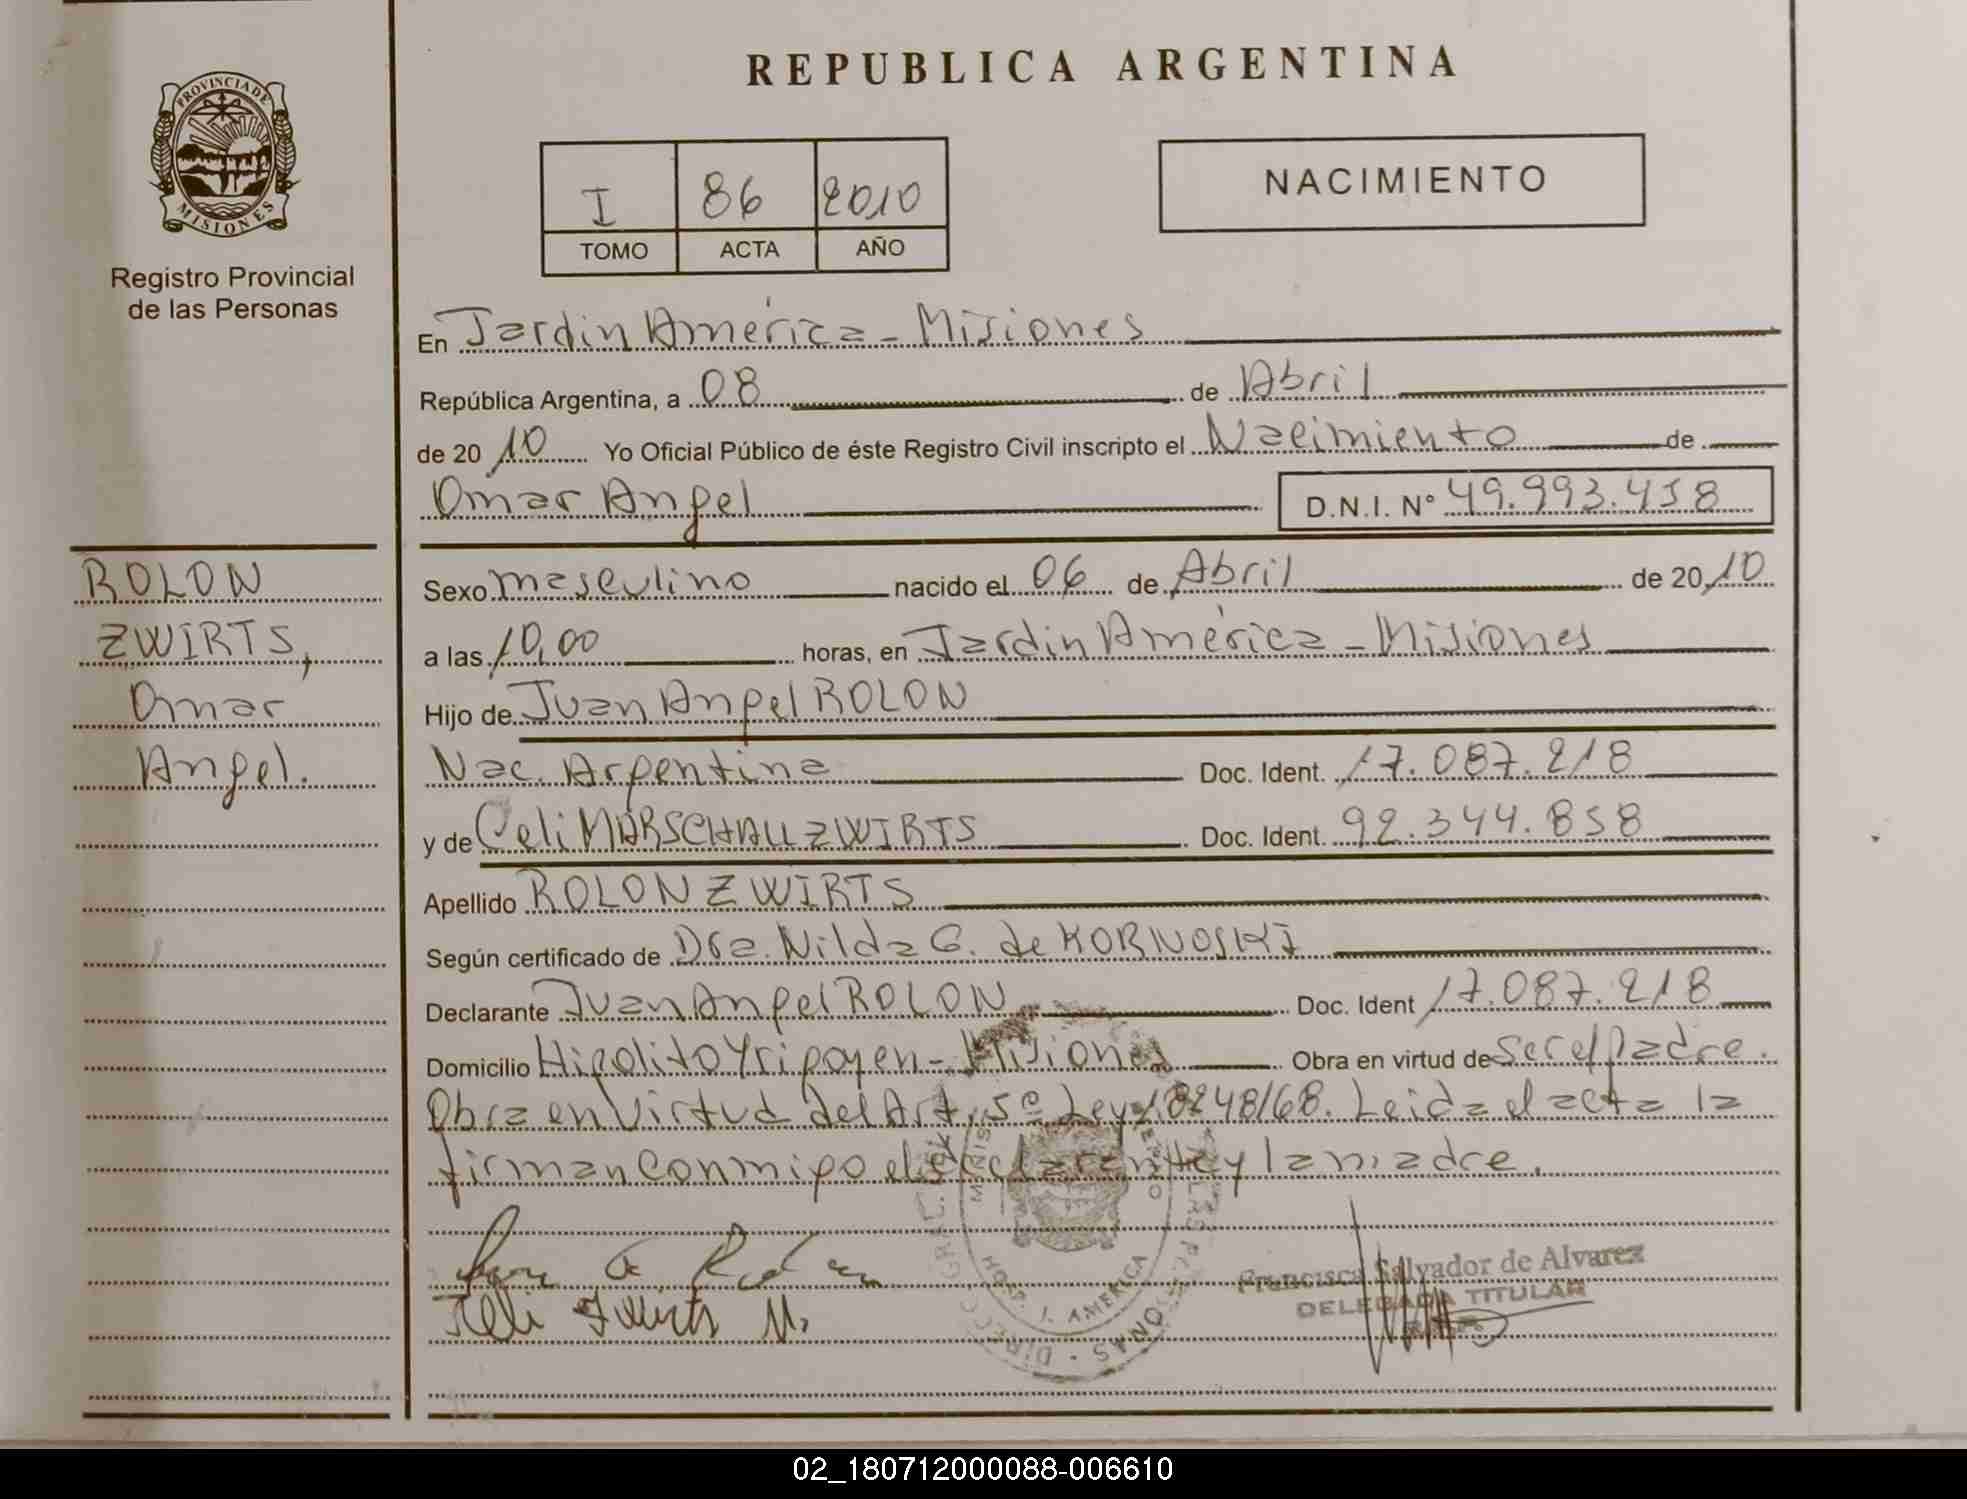 REPUBLICA ARGENTINA
PROVINCIA DE
MISIONES
Registro Provincial
de las Personas
I 86 2010
TOMO ACTA AÑO
NACIMIENTO
En Jardin América - Misiones
República Argentina, a 08 de Abril
de 20 10 Yo Oficial Público de éste Registro Civil inscripto el Nacimiento de
Omar Angel D.N.I. N° 49.993.458
ROLON
ZWIRTS,
Omar
Angel.
Sexo masculino nacido el 06 de Abril de 20 10
a las 10,00 horas, en Jardin América - Misiones
Hijo de Juan Angel ROLON
Nac. Argentina Doc. Ident. 17.087.218
y de Celi MARSCHALL ZWIRTS Doc. Ident. 92.344.858
Apellido ROLON ZWIRTS
Según certificado de Dra. Nilda G. de KORNOSKI
Declarante Juan Angel ROLON Doc. Ident 17.087.218
Domicilio Hipolito Yrigoyen - Misiones Obra en virtud de ser el padre.
Obra en virtud del Art. 5º Ley 18248/68. Leida el acta la
firman conmigo el declarante y la madre.
HOSP. J. AMERICA
Francisca Salvador de Alvarez
DELEGADA TITULAR
02_180712000088-006610